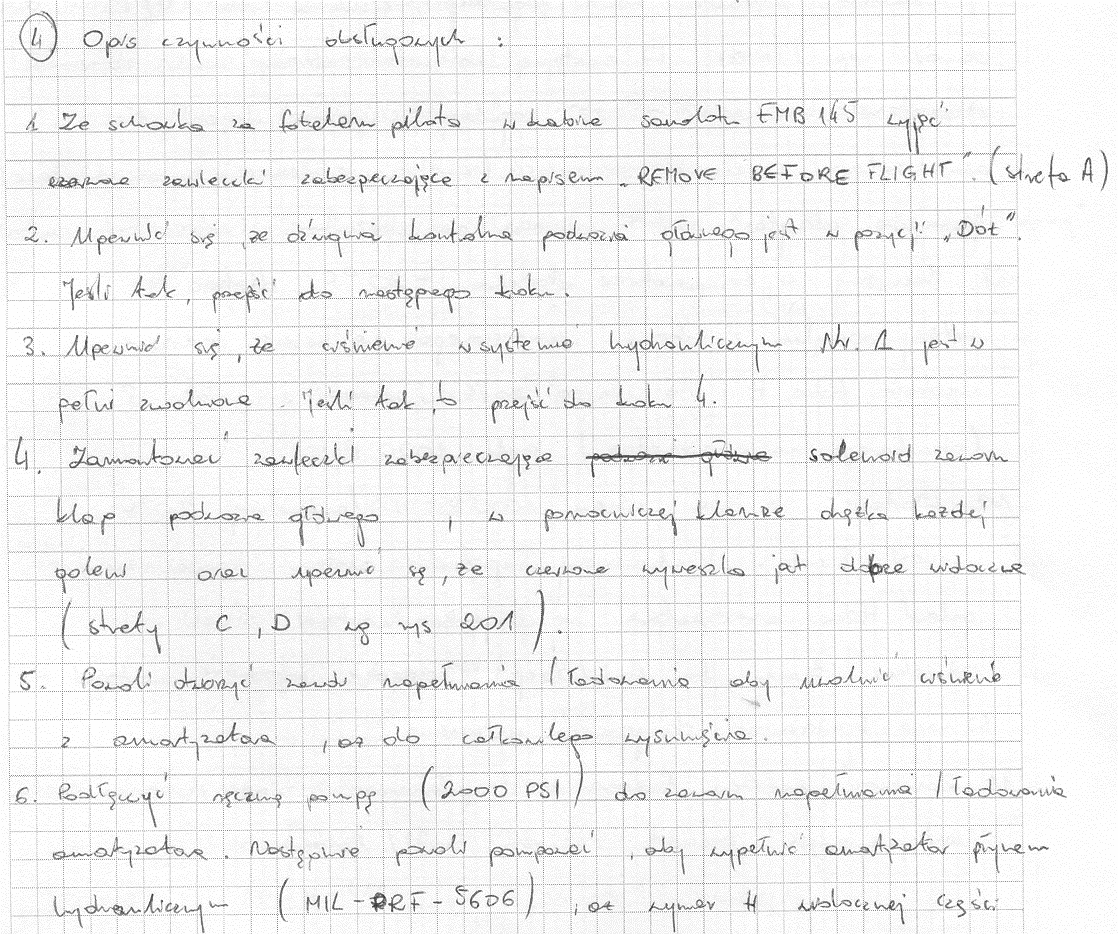 ④ Opis czynności obsługowych :
1 Ze schowka za fotelem pilota w kabinie samolotu EMB 145 wyjąć
czerwone zawleczki zabezpieczające z napisem „REMOVE BEFORE FLIGHT”. (strefa A)
2. Upewnić się, że dźwignia kontrolna podwozia głównego jest w pozycji „Dół”.
Jeśli tak, przejść do następnego kroku.
3. Upewnić się, że ciśnienie w systemie hydraulicznym Nr. 1 jest w
pełni zwolnione. Jeśli tak, to przejść do kroku 4.
4. Zamontować zawleczki zabezpieczające podwozie główne solenoid zaworu
klap podwozia głównego , w pomocniczej klamrze drążka każdej
goleni oraz upewnić się, że czerwona wywieszka jest dobrze widoczna
(strefy C, D wg rys 201).
5. Powoli otworzyć zawór napełniania / ładowania aby uwolnić ciśnienie
z amortyzatora , aż do całkowitego wysunięcia.
6. Podłączyć ręczną pompę (2000 PSI) do zaworu napełniania / ładowania
amortyzatora. Następnie powoli pompować , aby wypełnić amortyzator płynem
hydraulicznym (MIL-PRF-5606) , aż wymiar H widocznej części